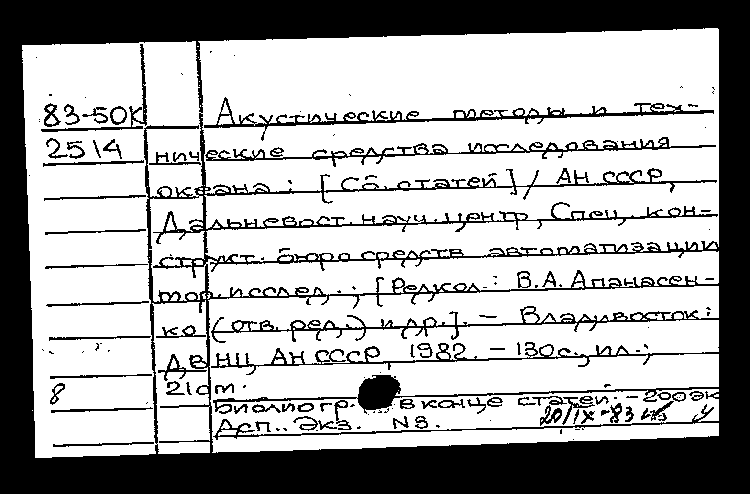 83-50К Акустические методы и тех-
2514 нические средства исследования
океана : [ Сб. статей ] / АН СССР,
Дальневост. науч. центр, Спец. кон-
структ. бюро средств автоматизации
мор. исслед. ; [ Редкол. : В.А. Апанасен-
ко (отв. ред.) и др. ]. – Владивосток :
ДВНЦ АН СССР, 1982. – 130 с., ил. ;
8 21 см.
Библиогр. в конце статей. – 200 эк
Деп.. Экз. N8. 20/IX-83